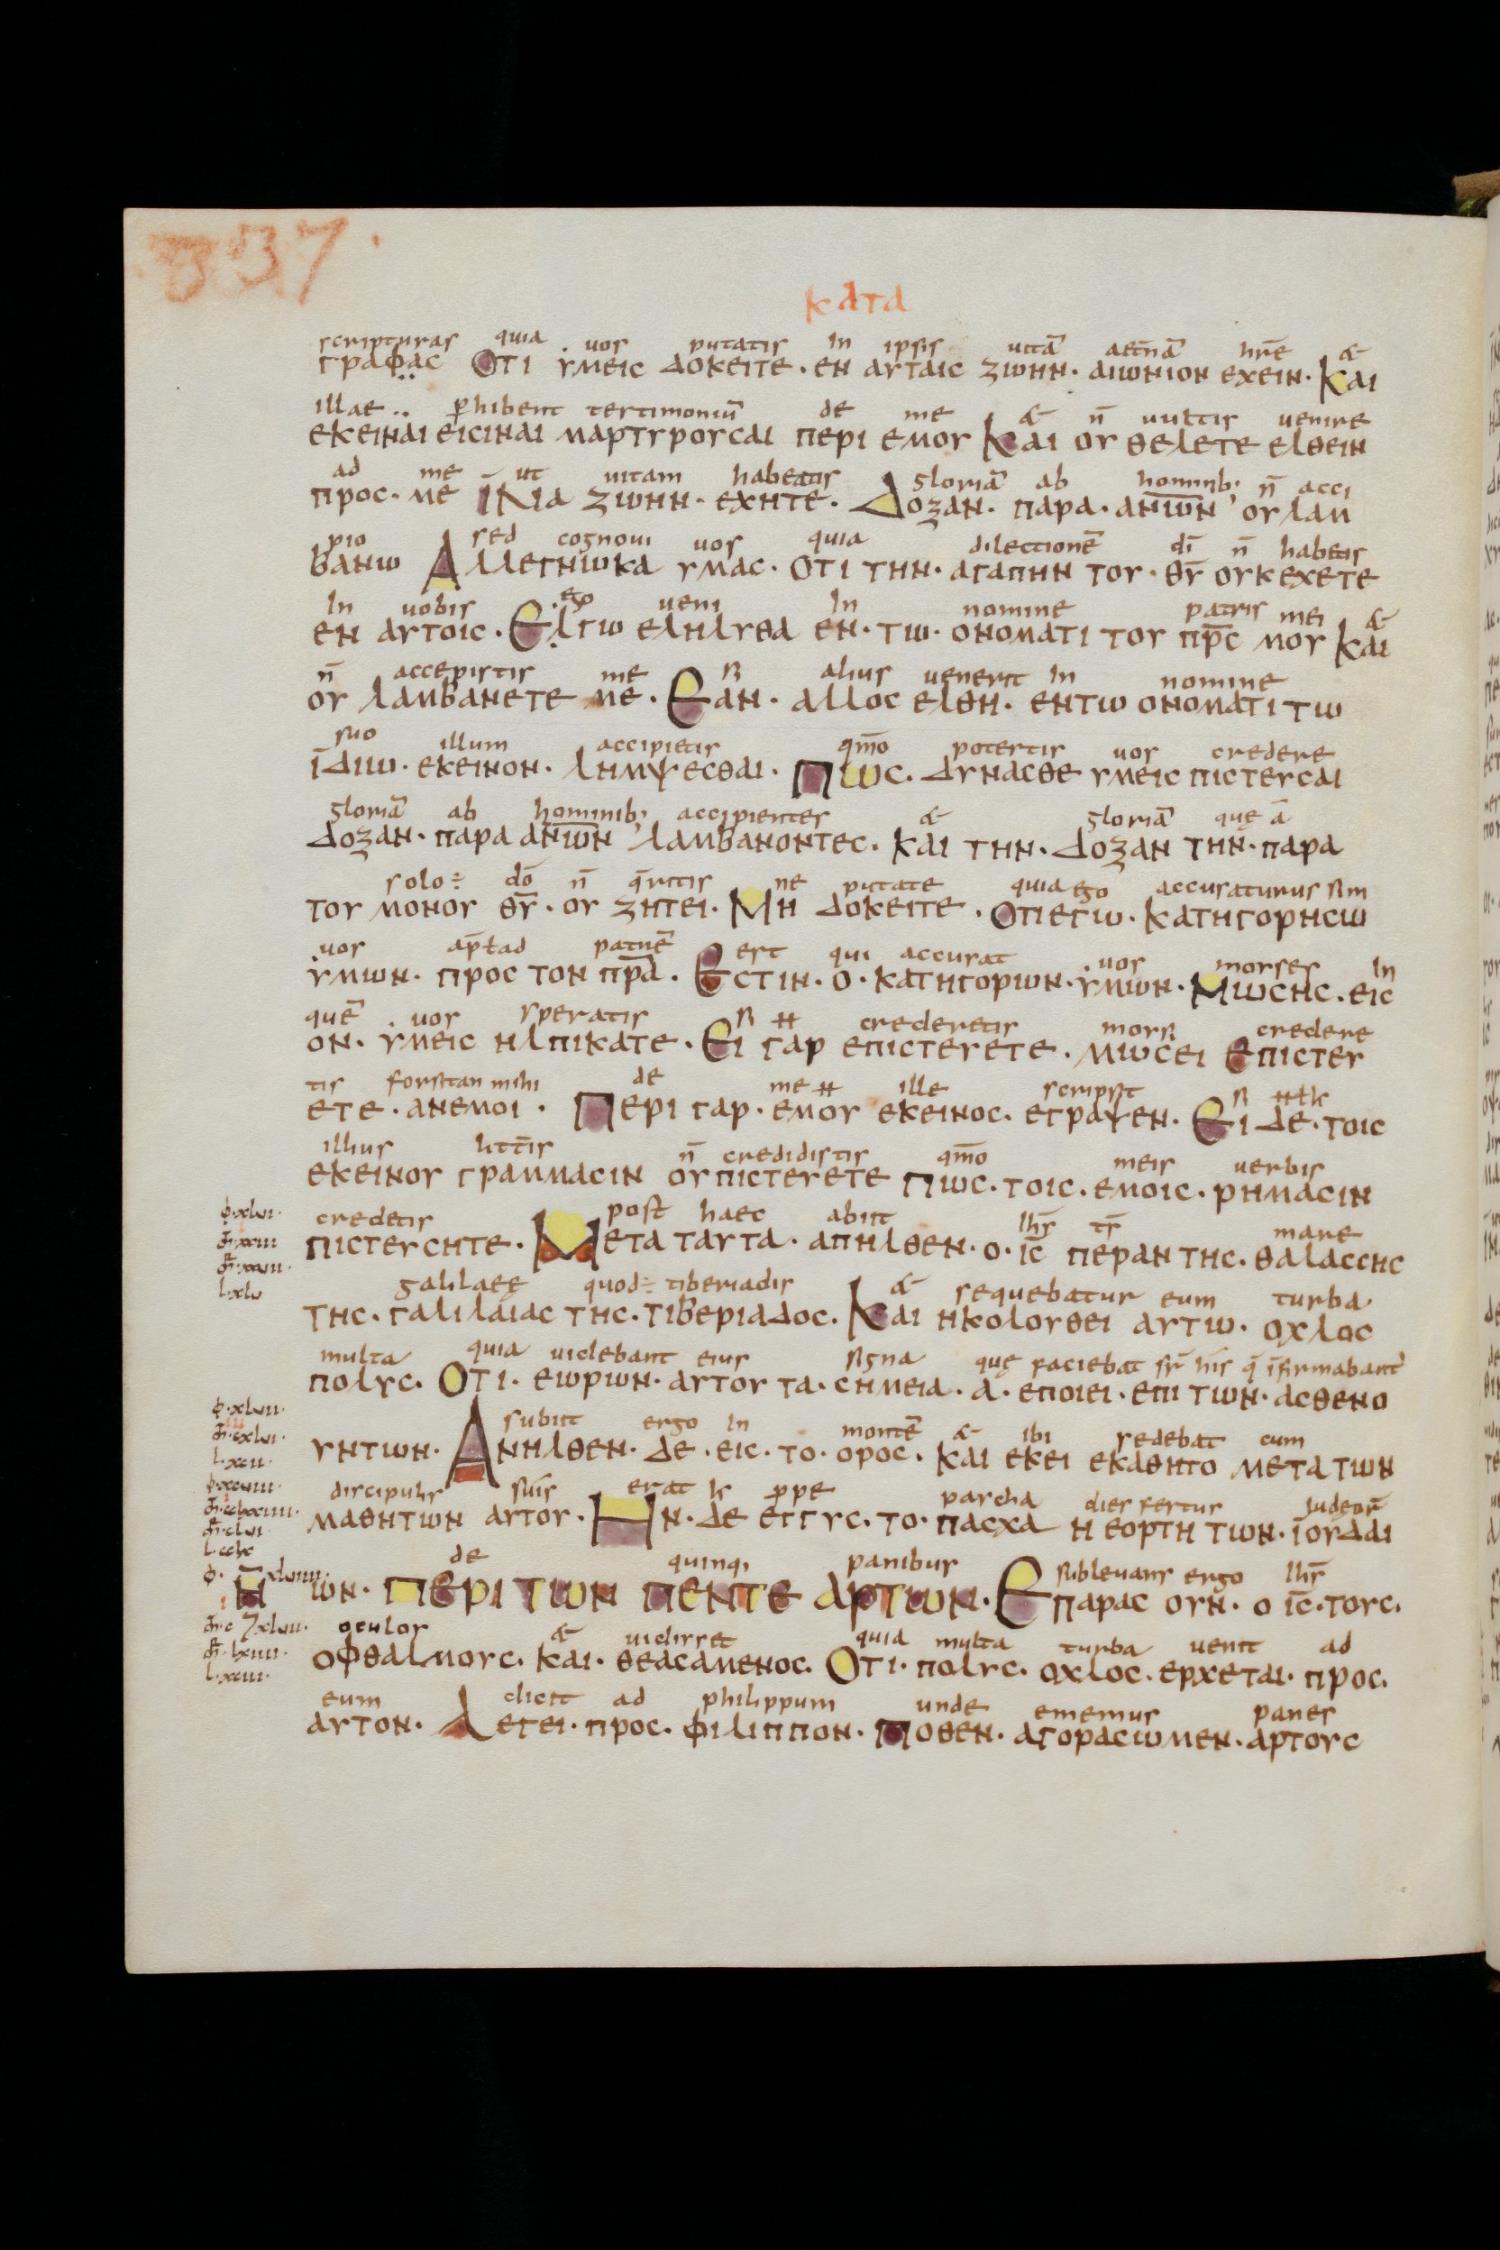 337.
κατα
scripturas quia uos putatis In ipsis uitā aet̄nā hr̄e &
γραφας Οτι υμεις δοκειτε · εν αυταις ζωην · αιωνιον εχειν · Και
illae ·· ꝑhibent testimoniū de me & n̄ uultis uenire
εκειναι εισιναι μαρτυρουσαι περι εμου Και ου θελετε ελθειν
ad me ut uitam habeatis gloriā ab hominib; n̄ acci
προς · με ϊνα ζωην · εχητε · Δοξαν · παρα · αν̅ω̅ν ου λαμ
pio sed cognoui uos quia dilectionē dī n̄ habetis
βανω Αλλεγνωκα υμας · οτι την · αγαπην του · θ̅υ̅ ουκ εχετε
In uobis · ego ueni In nomine patris mei &
εν αυτοις · Ελγω εληλυθα εν · τω · ονοματι του π̅ρ̅ς μου και
n̄ accepistis me alius uenerit In nomine
ου λαμβανετε με · Εαν · αλλος ελθη · εντω ονοματι τω
suo illum accipietis qm̄o potestis uos credere
ϊδιω · εκεινον · λημψεσθαι · Πως · δυνασθε υμεις πιστευσαι
gloriā ab hominib; accipientes & gloriā quę ā
δοξαν · παρα αν̅ω̅ν λαμβανοντες · και την · δοξαν την · παρα
solo ÷ dō n̄ q̄ritis ne putate quia ego accusaturus sum
του μονου θ̅υ̅ · ου ζητει · Μη δοκειτε · οτι εγω · κατηγορησω
uos ap̄tad patrē est qui accusat uos moyses In
υμων · προς τον π̅ρ̅α · Εστιν · ο · κατηγορων · υμων · Μωσης · εις
quē uos speratis crederetis credere
ον · υμεις ηλπικατε · Ει γαρ επιστευετε · μωσει Επιστευ
tis forsitan mihi de me ille scripsit
ετε · ανεμοι · Περι γαρ · εμου εκεινος · εγραψεν · Ει δε · τοις
illius litt̄is n̄ credidistis qm̄o meis uerbis
εκεινου γραμμασιν ου πιστευετε Πως · τοις · εμοις · ρημασιν
credetis post haec abiit Ihs̄ tr̄ mare
πιστευσητε · Μετα ταυτα · απηλθεν · ο · ι̅ς̅ περαν της · θαλασσης
galilaeę quod ÷ tiberiadis & sequebatur eum turba
της · γαλιλαιας της · τιβεριαδος · Και ηκολουθει αυτω · οχλος
multa quia uidebant eius signa quę faciebat sr̄ his q̄ īfirmabant'
πολυς · Οτι · εωρων · αυτου τα · σημεια · α · εποιει · επι των · ασθενο
subiit ergo In montē & ibi sedebat cum
υντων · Ανηλθεν · δε · εις · το · ορος · και εκει εκαθητο μετα των
discipulis suis erat ꝓpe pascha dies festus iudeor̄
μαθητων αυτου · Ην · δε εγγυς · το · πασχα η εορτη των · ϊουδαι
de quinq; panibus subleuans ergo Ihs̄
ων · Περι των πεντε αρτων · Επαρας ουν · ο ι̅ς̅ · τους ·
oculos & uidisset quia multa turba uenit ad
οφθαλμους · και · θεασαμενος · Οτι · πολυς · οχλος · ερχεται · προς ·
eum dicit ad philippum unde ememus panes
αυτον · Λεγει · προς · φιλιππον · Ποθεν · αγορασωμεν · αρτους